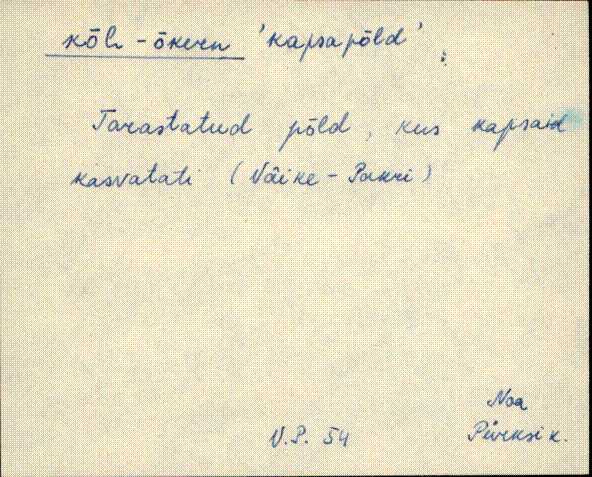 kõl-õkern 'kapsapõld'.
Tarastatud põld, kus kapsaid
kasvatati (Väike-Pakri)
Noa
V.P. 54 k.